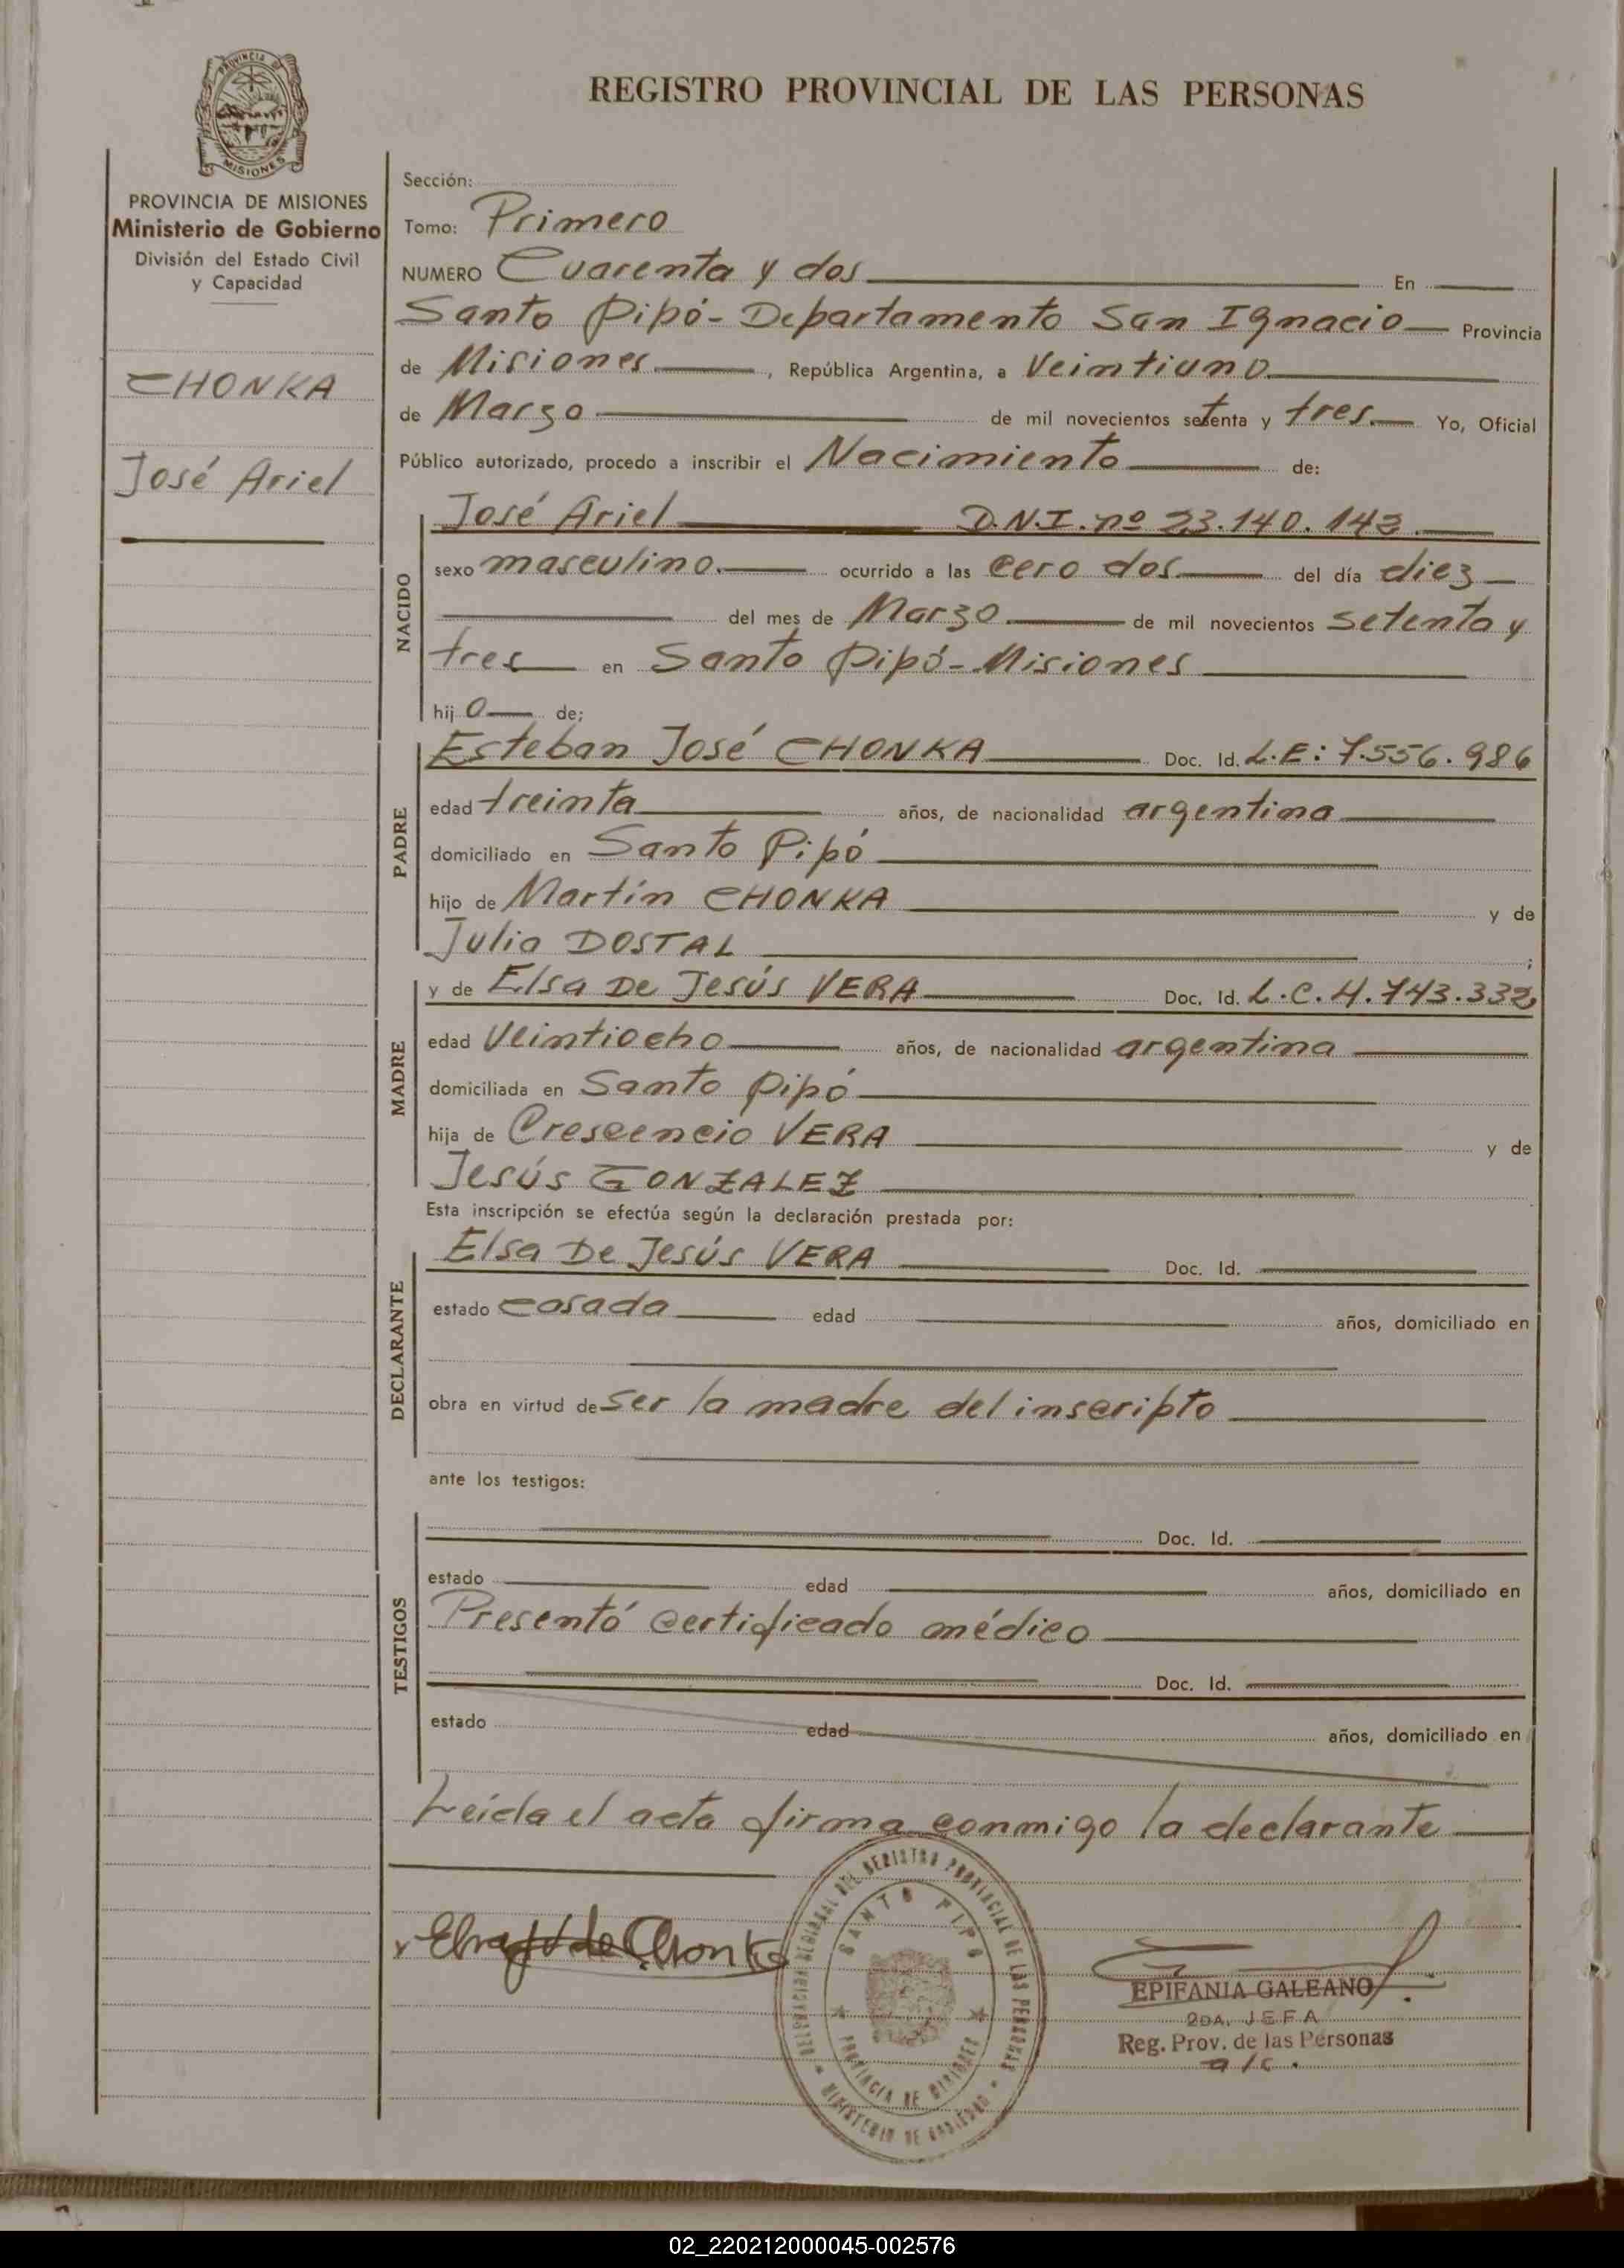 REGISTRO PROVINCIAL DE LAS PERSONAS
PROVINCIA DE MISIONES
PROVINCIA DE MISIONES
Ministerio de Gobierno
División del Estado Civil
y Capacidad
CHONKA
José Ariel
Sección:
Tomo: Primero
NUMERO Cuarenta y dos En
Santo Pipó - Departamento San Ignacio Provincia
de Misiones, República Argentina, a Veintiuno
de Marzo de mil novecientos setenta y tres. Yo, Oficial
Público autorizado, procedo a inscribir el Nacimiento de:
NACIDO
José Ariel D.N.I. nº 23.140.143
sexo masculino. ocurrido a las cero dos del día diez
del mes de Marzo de mil novecientos setenta y
tres en Santo Pipó - Misiones
hij o de;
PADRE
Esteban José CHONKA Doc. Id. L.E: 7.556.986
edad treinta años, de nacionalidad argentina
domiciliado en Santo Pipó
hijo de Martín CHONKA y de
Julia DOSTAL ;
MADRE
y de Elsa De Jesús VERA Doc. Id. L.C. 4.743.332
edad Veintiocho años, de nacionalidad argentina
domiciliada en Santo Pipó
hija de Crescencio VERA y de
Jesús GONZALEZ
Esta inscripción se efectúa según la declaración prestada por:
DECLARANTE
Elsa De Jesús VERA Doc. Id.
estado casada edad años, domiciliado en
obra en virtud de ser la madre del inscripto
ante los testigos:
TESTIGOS
Doc. Id.
estado edad años, domiciliado en
Presentó certificado médico
Doc. Id.
estado edad años, domiciliado en
Leída el acta firma conmigo la declarante
de Chonka
DELEGACION REGIONAL DEL REGISTRO PROVINCIAL DE LAS PERSONAS
SANTO PIPO
PROVINCIA DE MISIONES
MINISTERIO DE GOBIERNO
EPIFANIA GALEANO
2DA. JEFA
Reg. Prov. de las Personas
a/c.
02_220212000045-002576